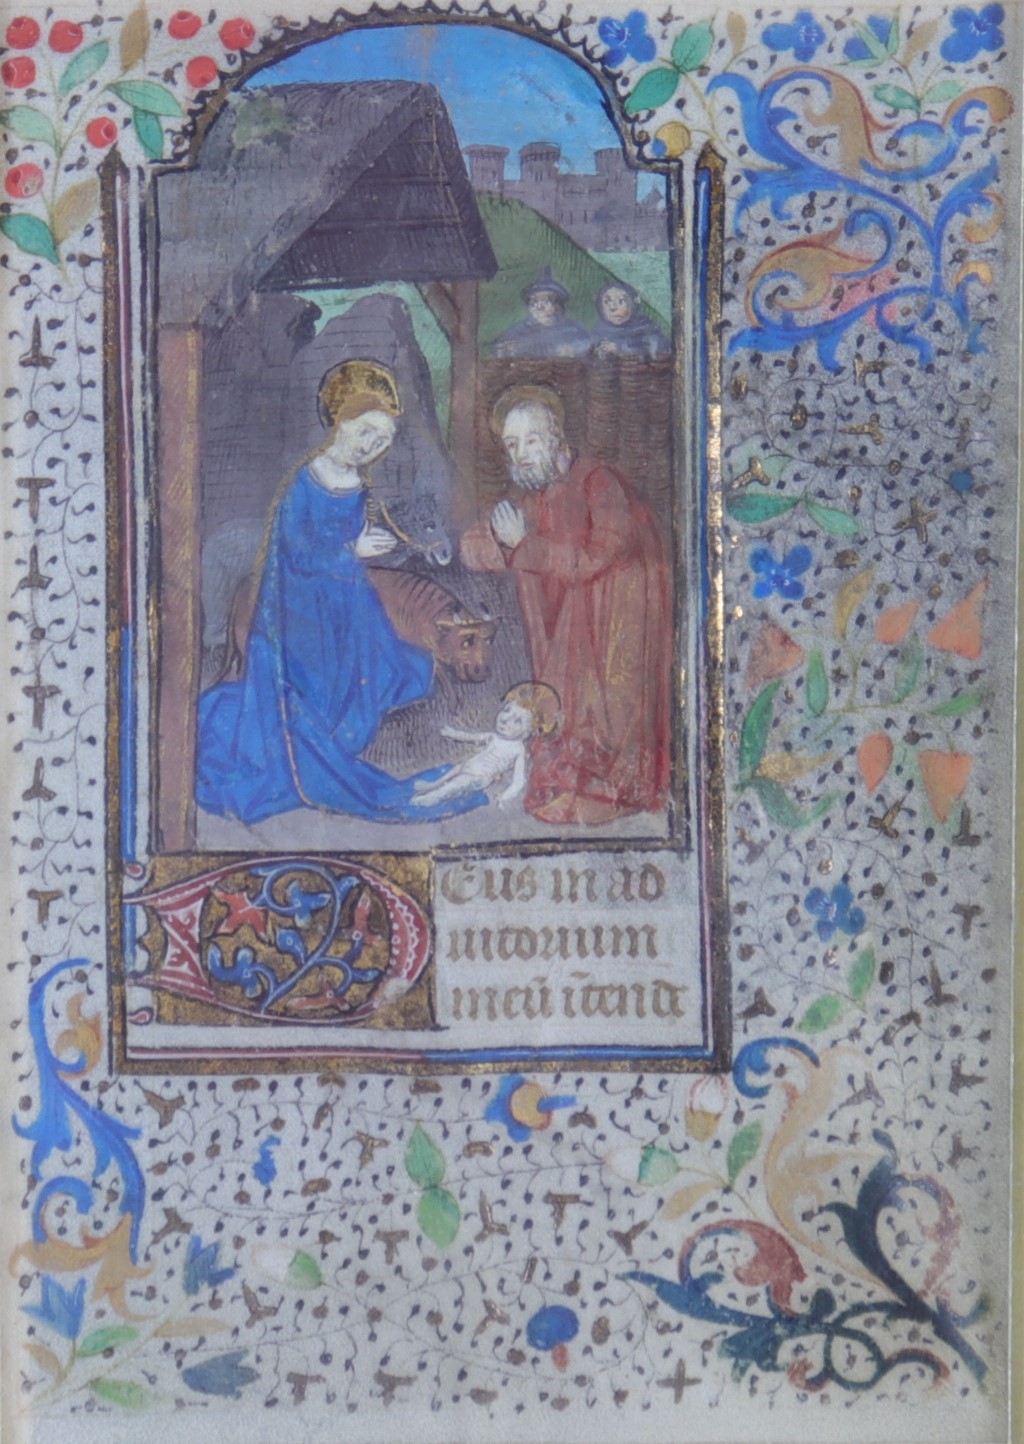 Deus in ad
iutorium
meū ītende